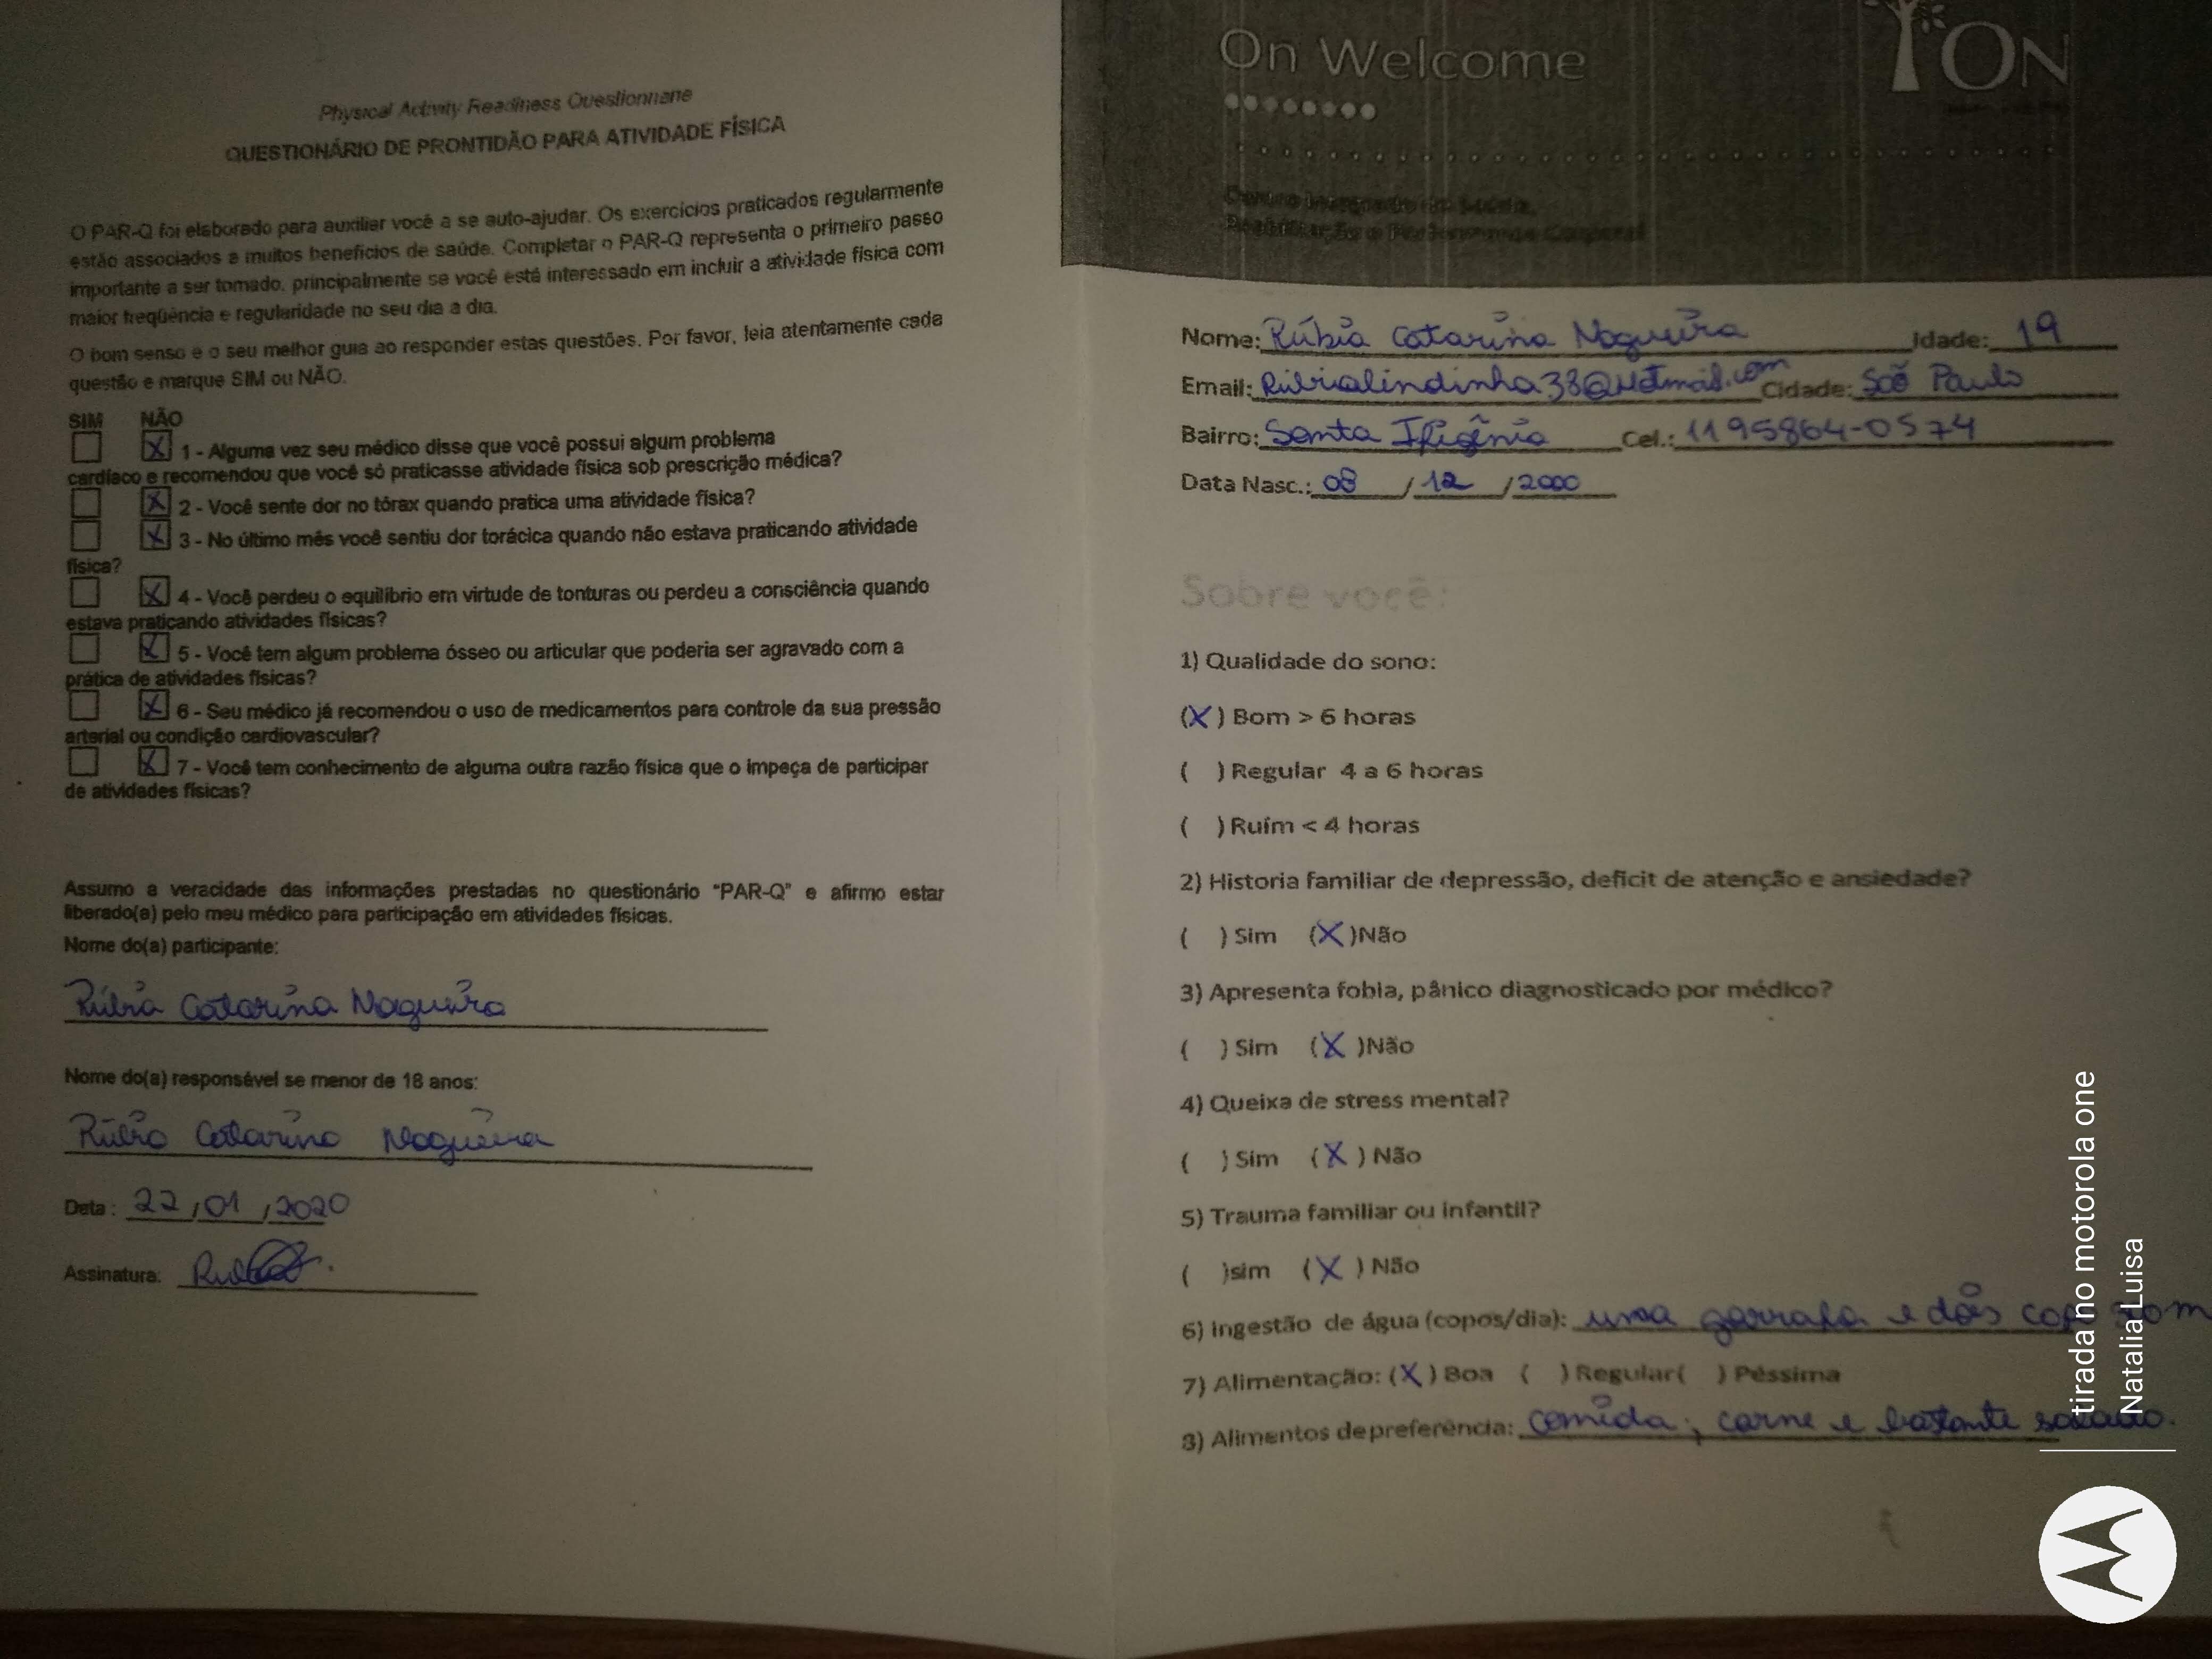 Physical Activity Readiness Questionnaire
QUESTIONÁRIO DE PRONTIDÃO PARA ATIVIDADE FÍSICA
O PAR-Q foi elaborado para auxiliar você a se auto-ajudar. Os exercícios praticados regularmente
estão associados a muitos benefícios de saúde. Completar o PAR-Q representa o primeiro passo
importante a ser tomado, principalmente se você está interessado em incluir a atividade física com
maior freqüência e regularidade no seu dia a dia.
O bom senso é o seu melhor guia ao responder estas questões. Por favor, leia atentamente cada
questão e marque SIM ou NÃO.
SIM NÃO
X 1 - Alguma vez seu médico disse que você possui algum problema
cardíaco e recomendou que você só praticasse atividade física sob prescrição médica?
X 2 - Você sente dor no tórax quando pratica uma atividade física?
X 3 - No último mês você sentiu dor torácica quando não estava praticando atividade
física?
X 4 - Você perdeu o equilíbrio em virtude de tonturas ou perdeu a consciência quando
estava praticando atividades físicas?
X 5 - Você tem algum problema ósseo ou articular que poderia ser agravado com a
prática de atividades físicas?
X 6 - Seu médico já recomendou o uso de medicamentos para controle da sua pressão
arterial ou condição cardiovascular?
X 7 - Você tem conhecimento de alguma outra razão física que o impeça de participar
de atividades físicas?
Assumo a veracidade das informações prestadas no questionário "PAR-Q" e afirmo estar
liberado(a) pelo meu médico para participação em atividades físicas.
Nome do(a) participante:
Rúbia Catarina Nogueira
Nome do(a) responsável se menor de 18 anos:
Rúbia Catarina Nogueira
Data: 22, 01, 2020
Assinatura:
On Welcome
ON
Nome: Rúbia Catarina Nogueira Idade: 19
Email: Rubialindinha38@Hotmail.com Cidade: São Paulo
Bairro: Santa Ifigênia Cel.: 11 95864-0574
Data Nasc.: 08 / 12 / 2000
Sobre você:
1) Qualidade do sono:
(X) Bom > 6 horas
( ) Regular 4 a 6 horas
( ) Ruím < 4 horas
2) Historia familiar de depressão, deficit de atenção e ansiedade?
( ) Sim (X)Não
3) Apresenta fobia, pânico diagnosticado por médico?
( ) Sim (X)Não
4) Queixa de stress mental?
( ) Sim (X) Não
5) Trauma familiar ou infantil?
( )sim (X) Não
6) Ingestão de água (copos/dia): uma garrafa e dois
7) Alimentação: (X) Boa ( ) Regular( ) Péssima
8) Alimentos de preferência: comida; carne e bastante salada.
tirada no motorola one
Natalia Luisa